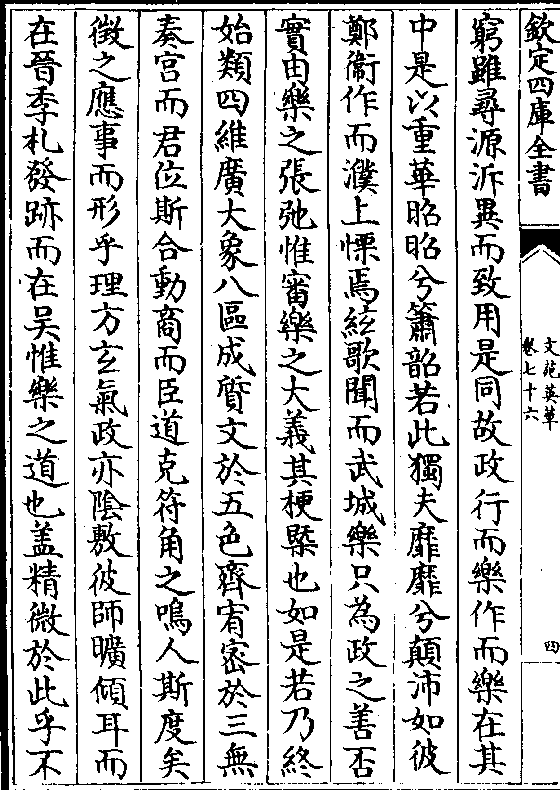 欽定四庫全書
文苑英華
卷七十六
四
窮雖尋源泝異而致用是同故政行而樂作而樂在其
中是以重華昭昭兮簫韶若此獨夫靡靡兮顛沛如彼
鄭衞作而濮上慄焉絃歌聞而武城樂只為政之善否
實由樂之張弛惟審樂之大義其梗槩也如是若乃終
始類四維廣大象八區成質文於五色齊宥密於三無
奏宫而君位斯合動商而臣道克符角之鳴人斯度矣
徴之應事而形乎理方玄氣政亦陰敷彼師曠傾耳而
在晉季札發跡而在吳惟樂之道也盖精微於此乎不